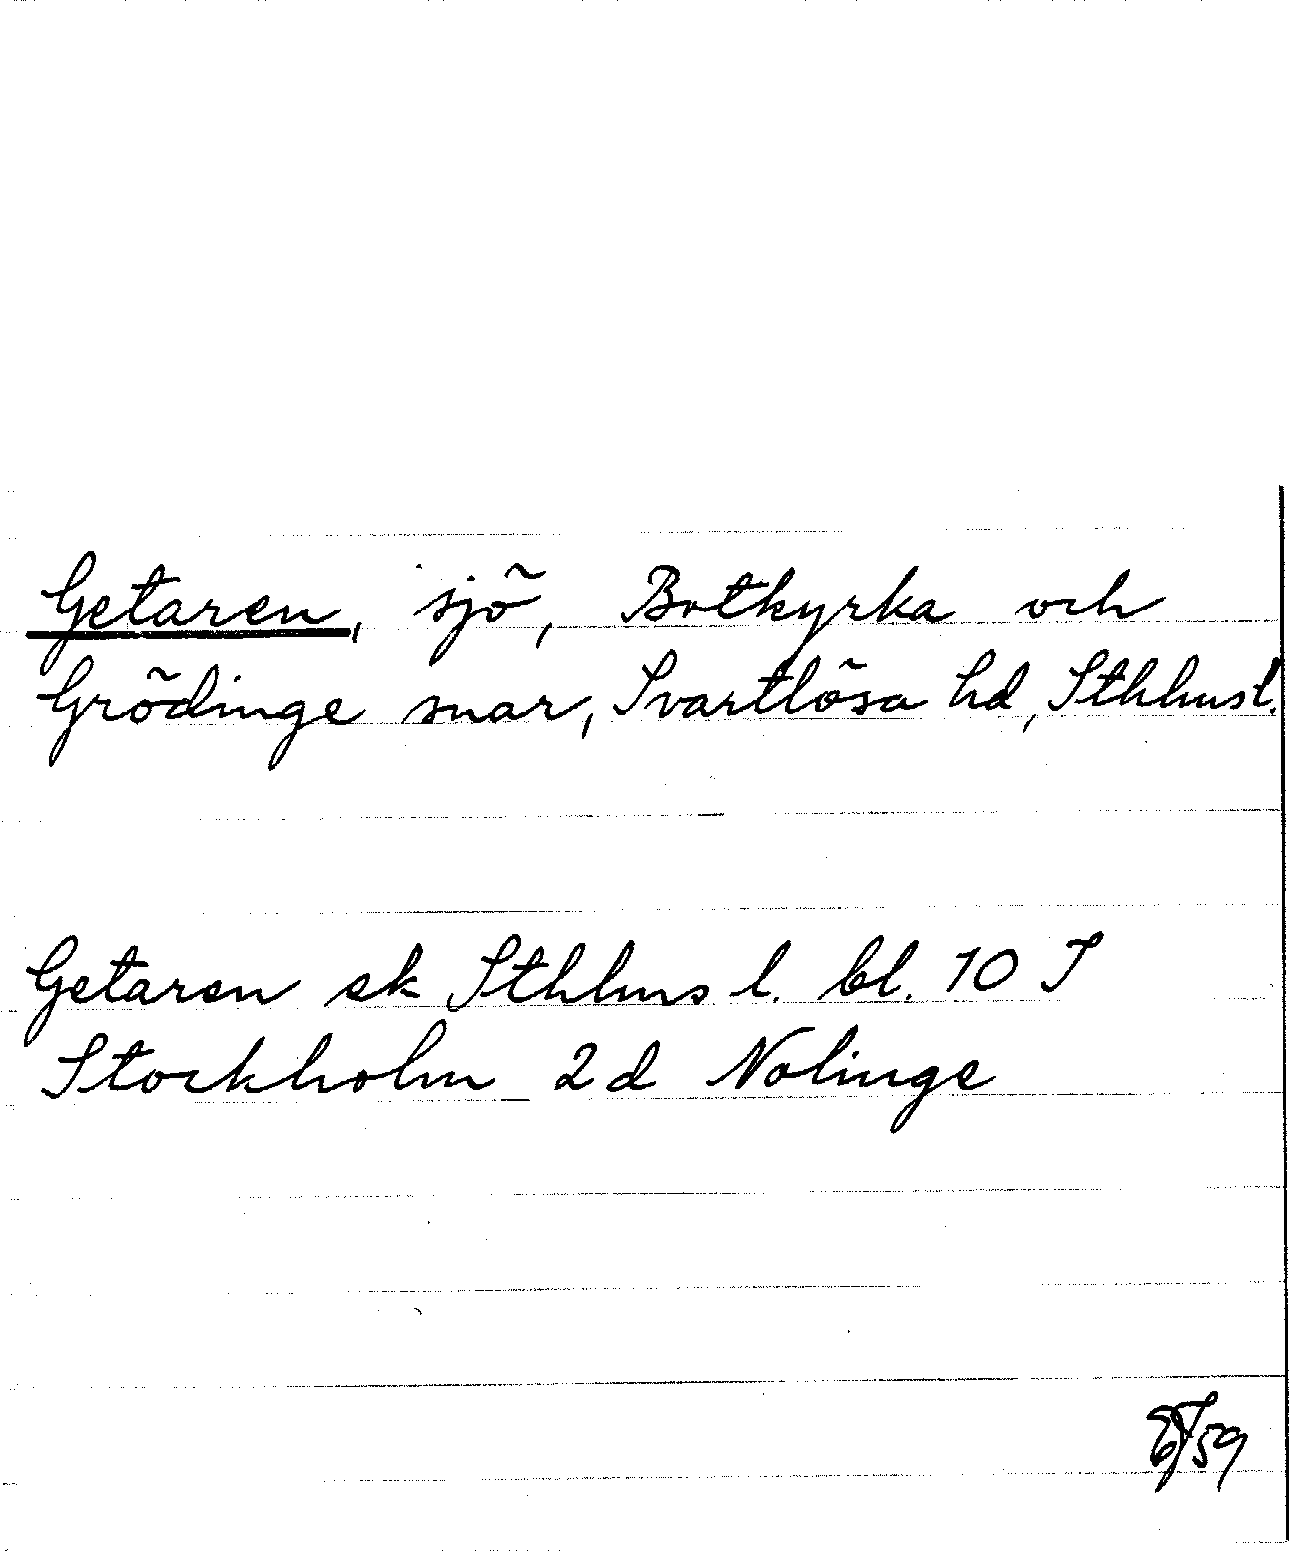 Getaren, sjö, Botkyrka och
Grödinge snar, Svartlösa hd, Sthlmsl.
Getaren ek Sthlms l. bl. 10 J
Stockholm 2d Nolinge